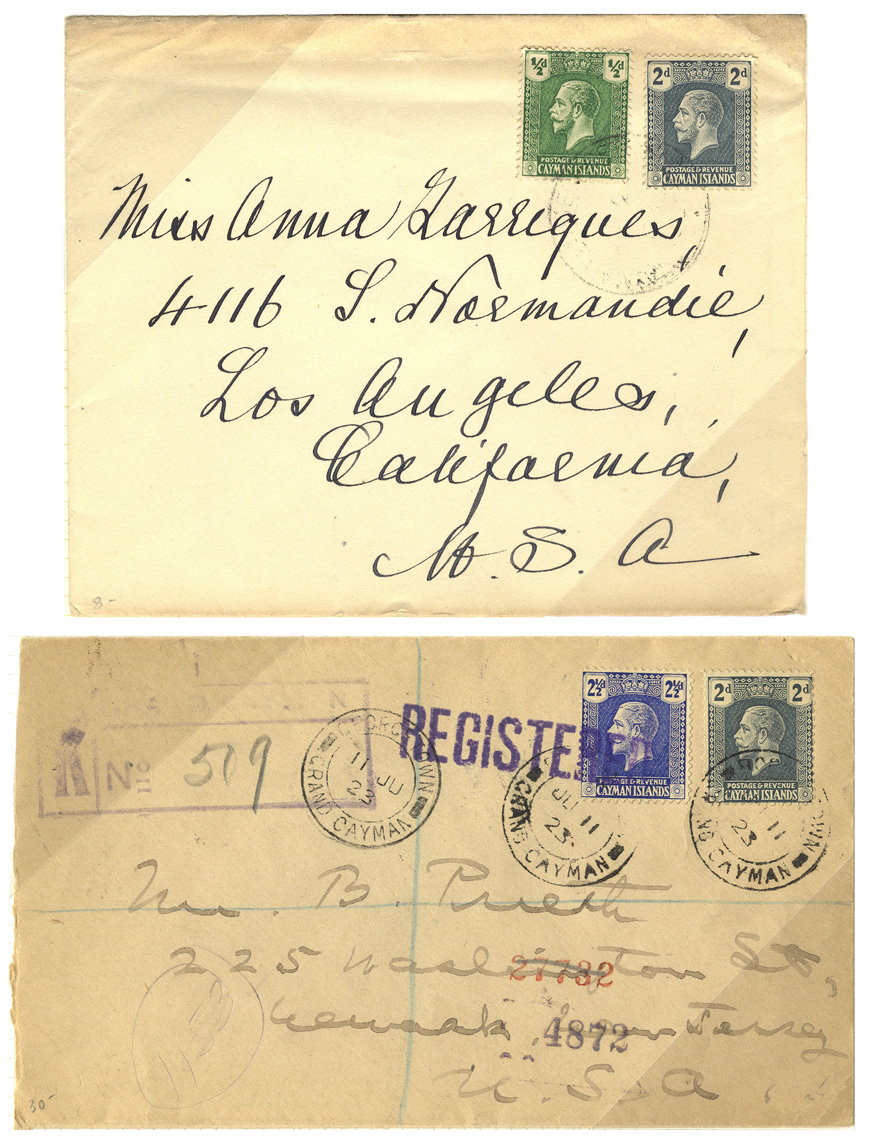 ½d ½d
POSTAGE & REVENUE
CAYMAN ISLANDS
2d 2d
POSTAGE & REVENUE
CAYMAN ISLANDS
Miss Anna Garrigues,
4116 S. Normandie,
Los Angeles,
California,
U. S. A
8-
REGISTERED
2½d 2½d
POSTAGE & REVENUE
CAYMAN ISLANDS
2d 2d
POSTAGE & REVENUE
CAYMAN ISLANDS
R No 519
GEORGETOWN
11 JU
23
GRAND CAYMAN
JU 11
23
GRAND CAYMAN
11
23
GRAND CAYMAN
Mr. B. Preeth
225 Washington St,
27732
Newark, New Jersey
4872
U. S. A.
30-